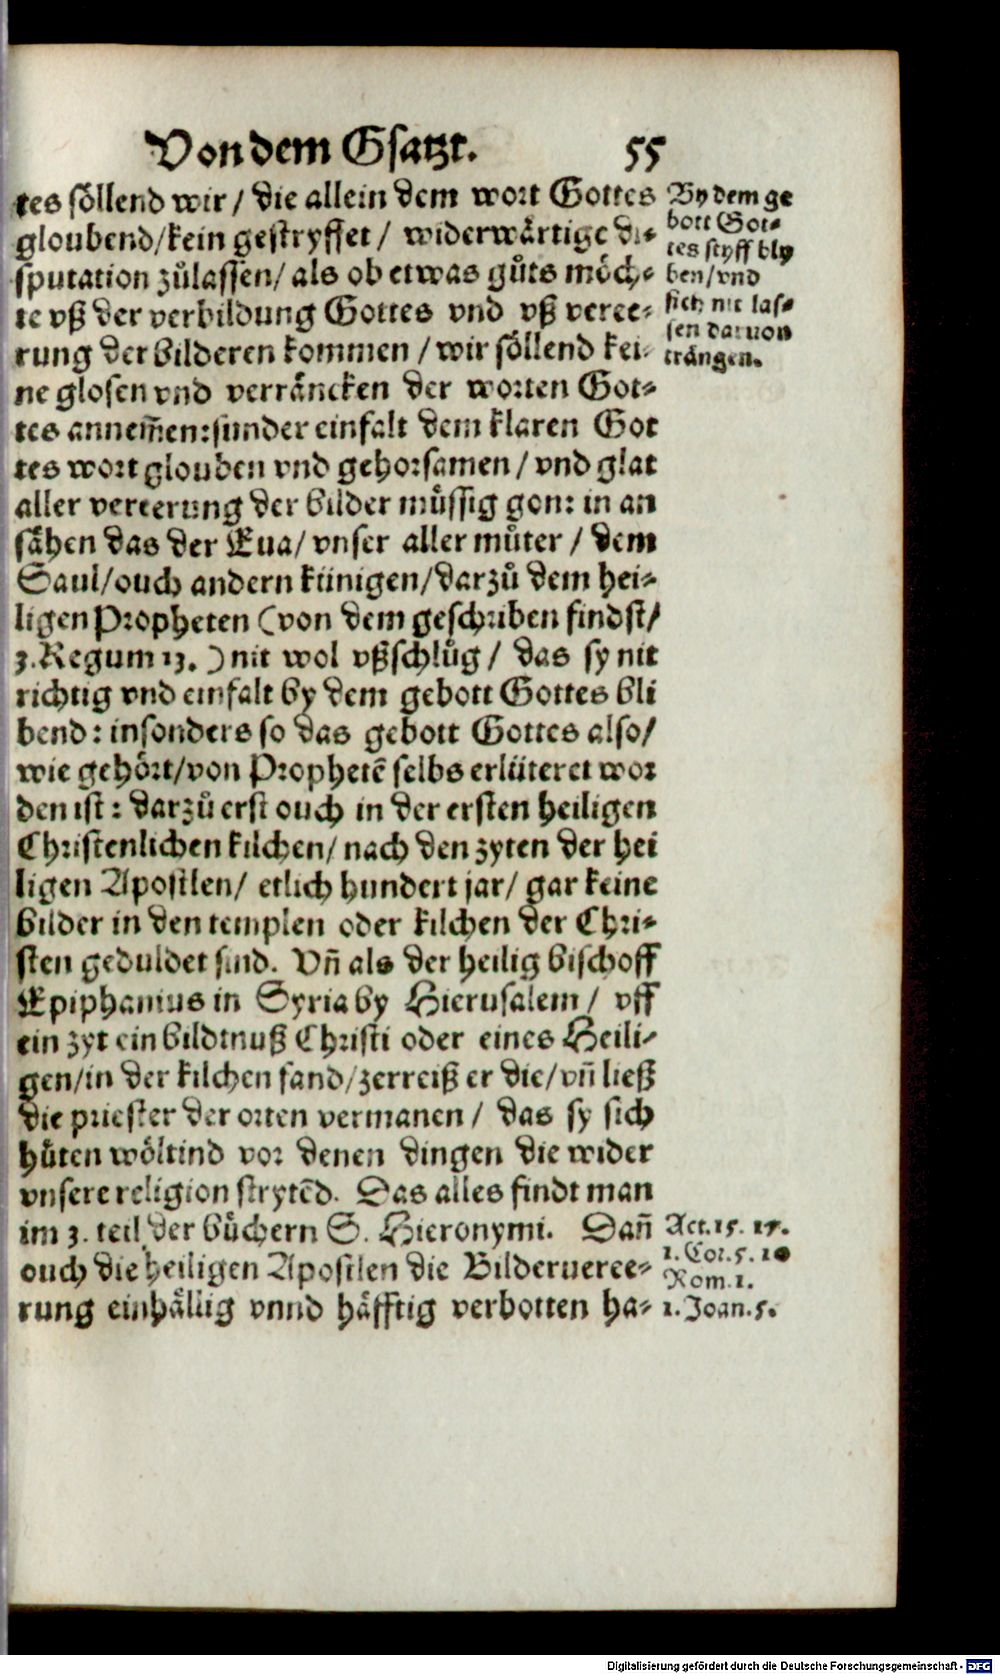 Von dem Gsatzt. 55
tes söllend wir / die allein dem wort Gottes
gloubend/kein gestryffet / widerwärtige di-
sputation zůlassen/ als ob etwas gůts möch-
te vß der verbildung Gottes vnd vß veree-
rung der bilderen kommen / wir söllend kei-
ne glosen vnd verräncken der worten Got-
tes annem̃en: sunder einfalt dem klaren Got
tes wort glouben vnd gehorsamen / vnd glat
aller vererung der bilder müssig gon: in an
sähen das der Eua/ vnser aller můter / dem
Saul/ouch andern künigen/darzů dem hei-
ligen Propheten (von dem geschriben findst/
3.Regum 13.) nit wol vßschlůg / das sy nit
richtig vnd einfalt by dem gebott Gottes bli
bend: insonders so das gebott Gottes also/
wie gehört/von Prophetẽ selbs erlüteret wor
den ist: darzů erst ouch in der ersten heiligen
Christenlichen kilchen/ nach den zyten der hei
ligen Apostlen/ etlich hundert jar/ gar keine
bilder in den templen oder kilchen der Chri-
sten geduldet sind. Vñ als der heilig bischoff
Epiphanius in Syria by Hierusalem / vff
ein zyt ein bildtnuß Christi oder eines Heili-
gen/in der kilchen fand/zerreiß er die/vñ ließ
die priester der orten vermanen / das sy sich
hüten wöltind vor denen dingen die wider
vnsere religion strytẽd. Das alles findt man
im 3. teil der büchern S. Hieronymi. Dañ
ouch die heiligen Apostlen die Bilderueree-
rung einhällig vnnd häfftig verbotten ha-
By dem ge
bott Got-
tes styff bly
ben/vnd
sich nit las-
sen daruon
trängen.
Act.15. 17.
1. Cor.5. 10
Rom.1.
1. Joan.5.
Digitalisierung gefördert durch die Deutsche Forschungsgemeinschaft - DFG